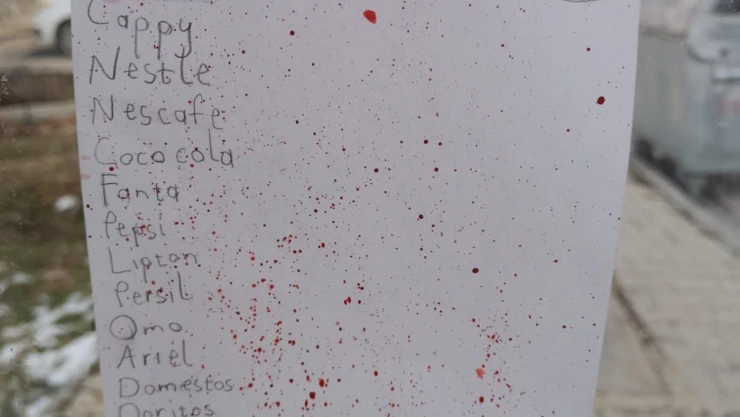 Cappy
Nestle
Nescafe
Coco cola
Fanta
Pepsi
Lipton
Persil
Omo
Ariel
Domestos
Doritos